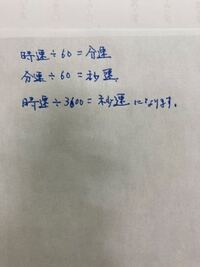 時速÷60=分速
分速÷60=秒速
時速÷3600=秒速になります。